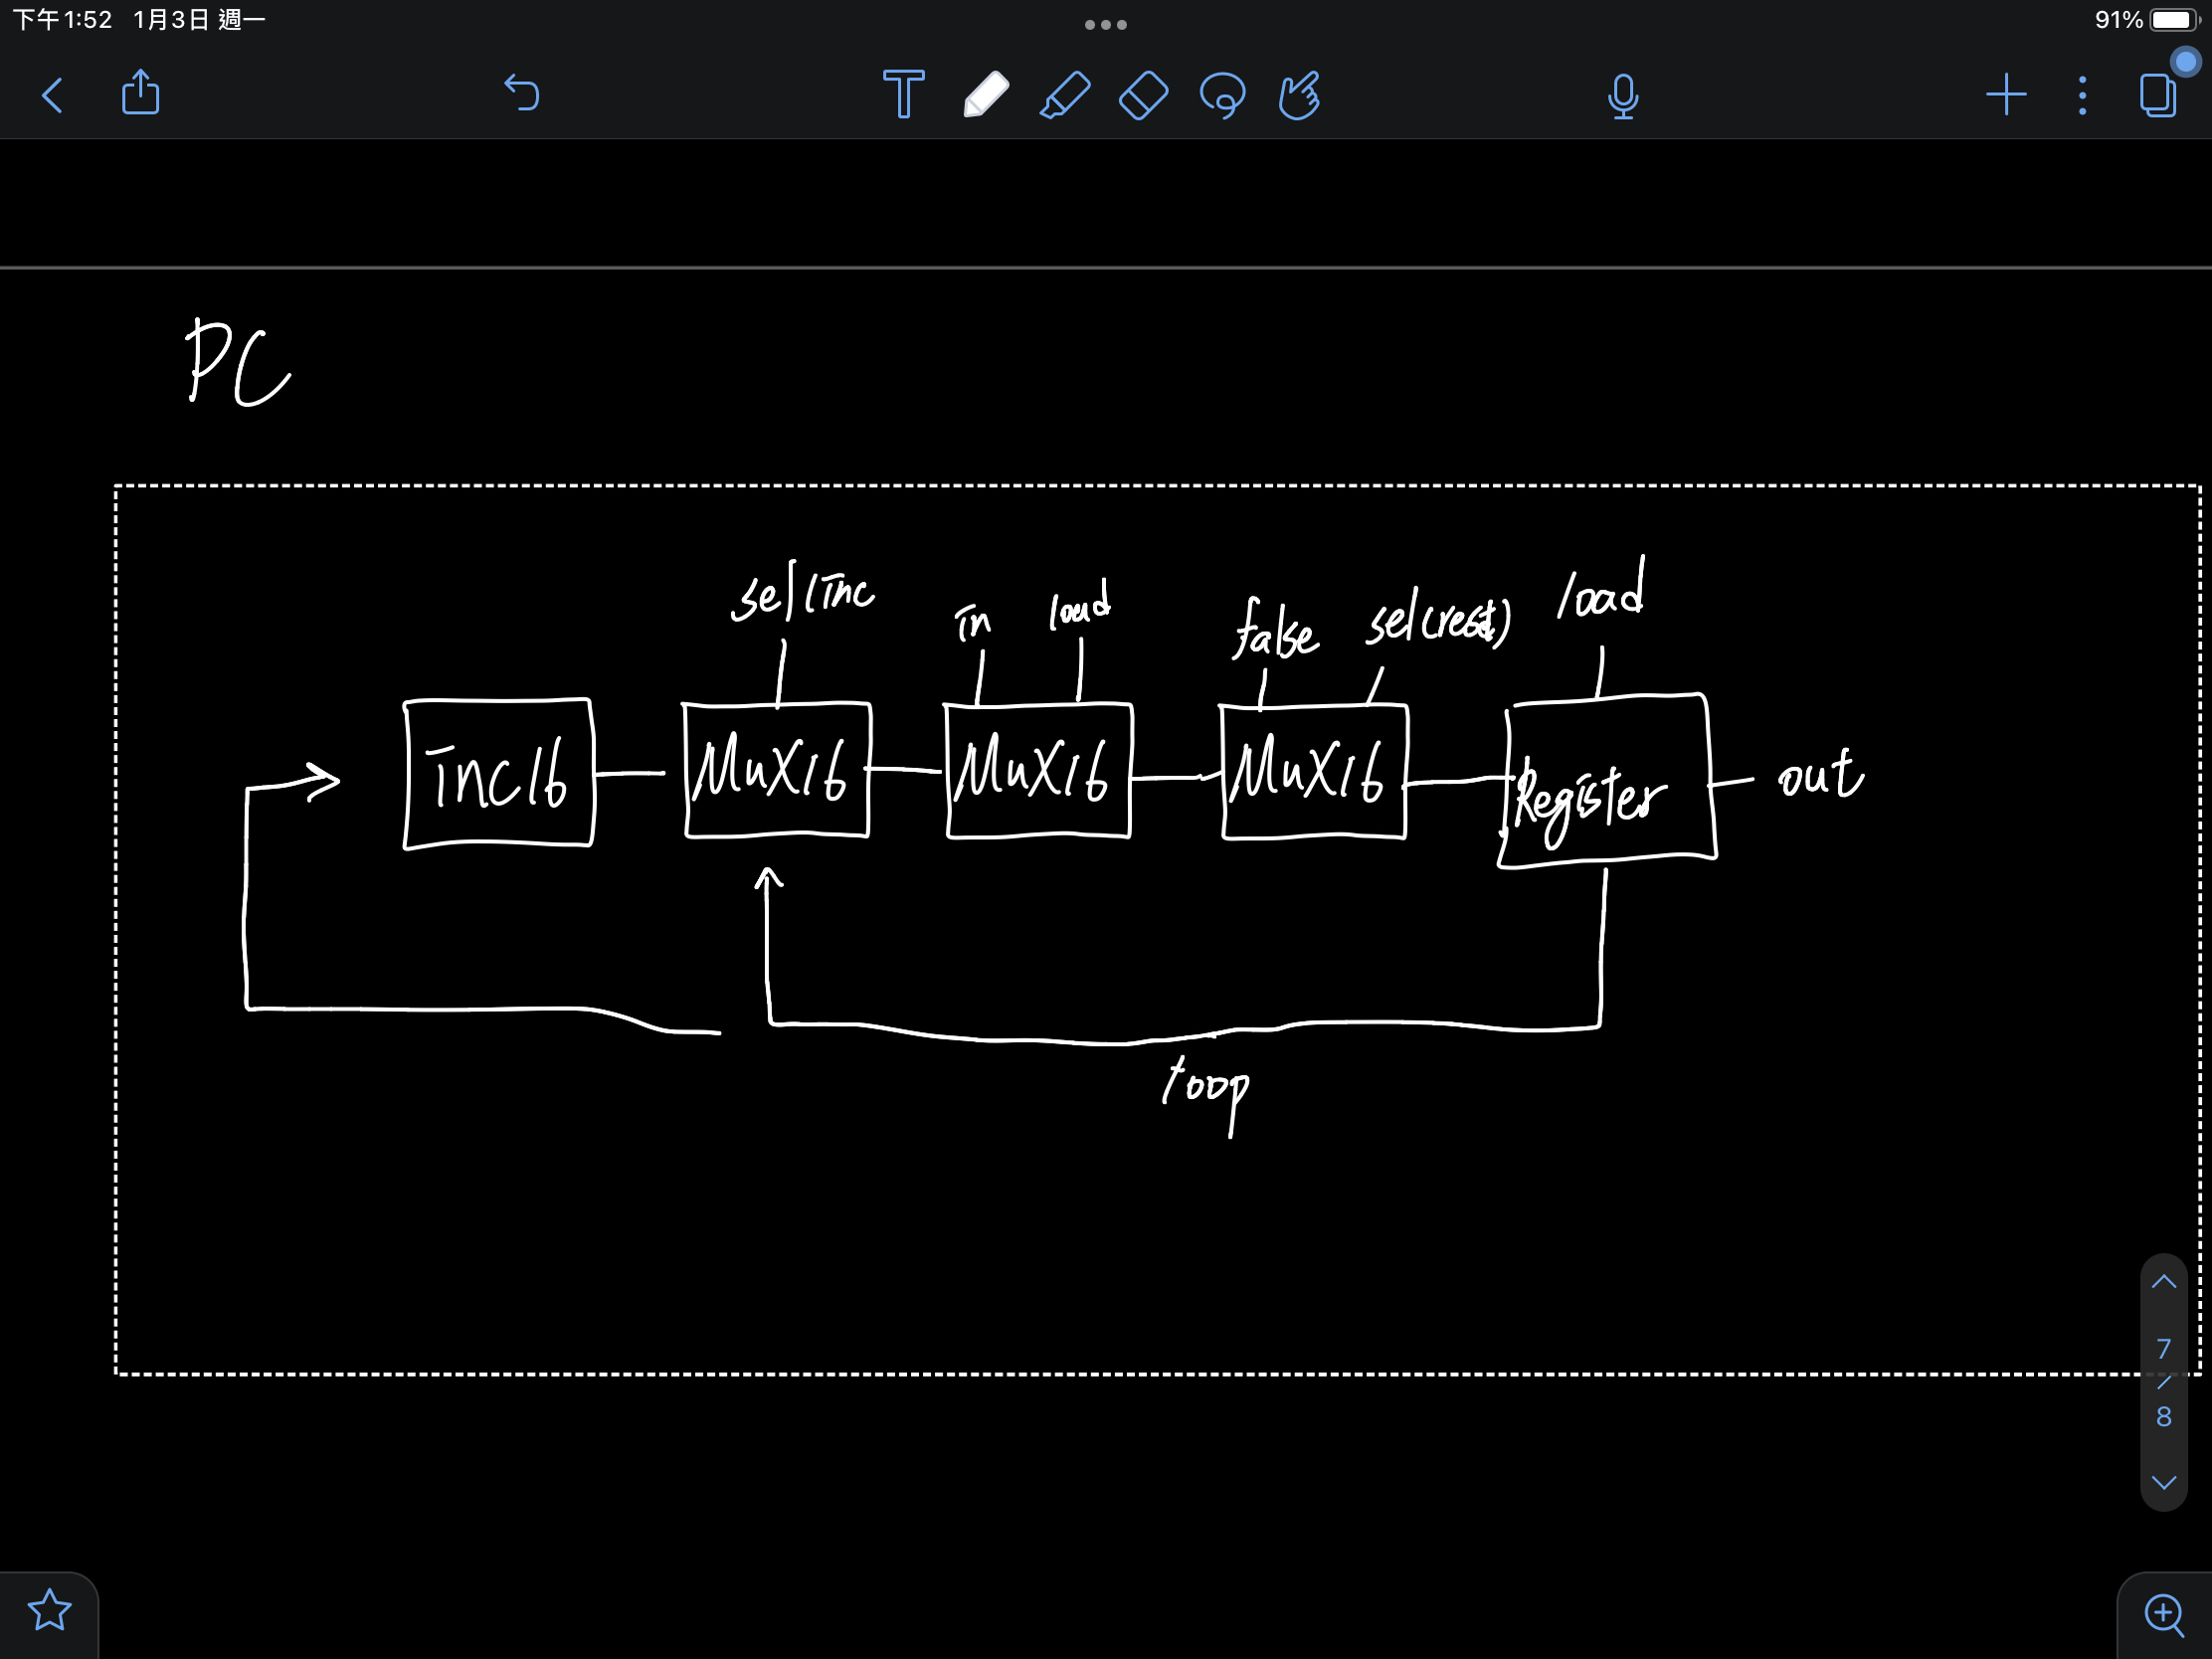 下午1:52 1月3日 週一
91%
T
PC
sel(inc
in
load
false
sel(reset)
load
inc16
Mux16
Mux16
Mux16
Register
out
loop
7
/
8